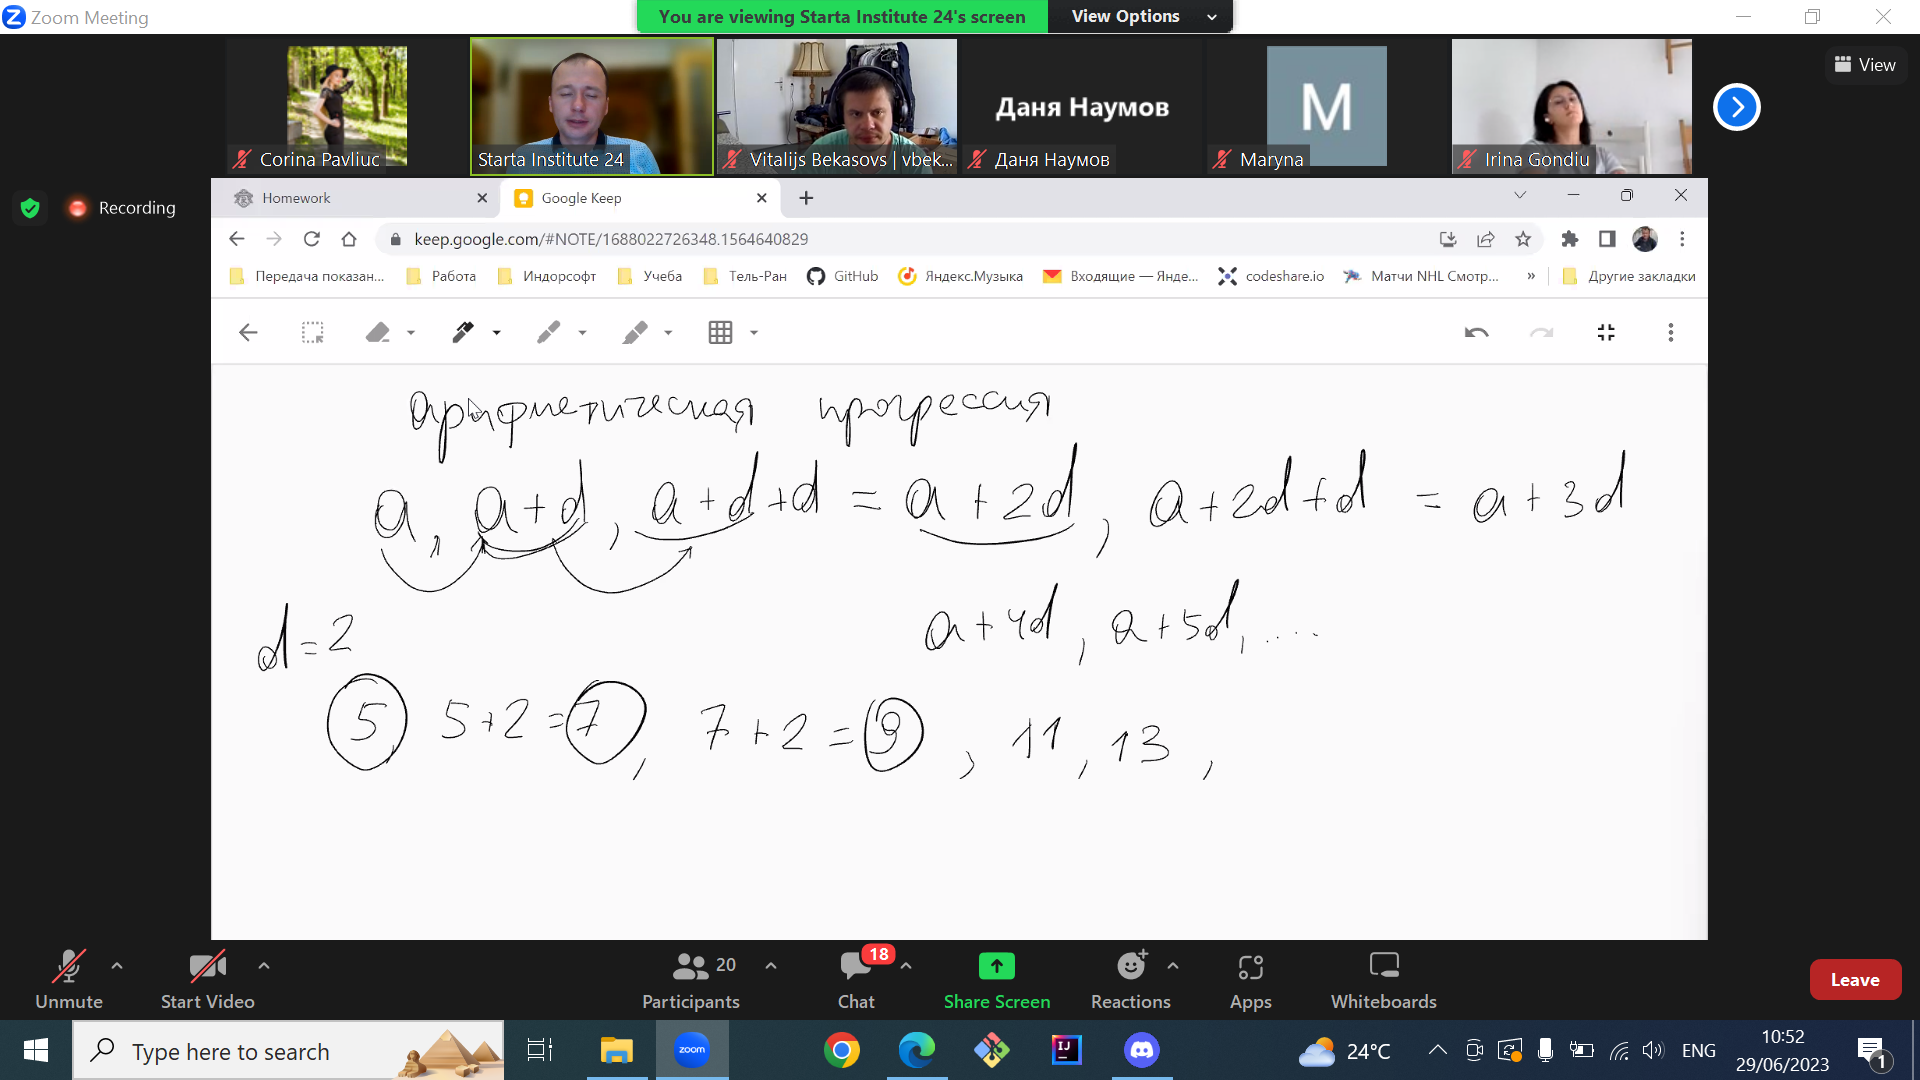 Zoom Meeting
You are viewing Starta Institute 24's screen View Options
Даня Наумов
M
View
Corina Pavliuc
Starta Institute 24
Vitalijs Bekasovs | vbek...
Даня Наумов
Maryna
Irina Gondiu
Recording
Homework
Google Keep
keep.google.com/#NOTE/1688022726348.1564640829
Передача показан... Работа Индорсофт Учеба Тель-Ран GitHub Яндекс.Музыка Входящие — Янде... codeshare.io Матчи NHL Смотр... » Другие закладки
арифметическая прогрессия
a, a+d, a+d+d = a+2d, a+2d+d = a+3d
a+4d, a+5d, ....
d=2
5, 5+2=7, 7+2=9, 11, 13,
20
18
Unmute Start Video Participants Chat Share Screen Reactions Apps Whiteboards
Leave
Type here to search
zoom
IJ
24°C
ENG
10:52
29/06/2023
1